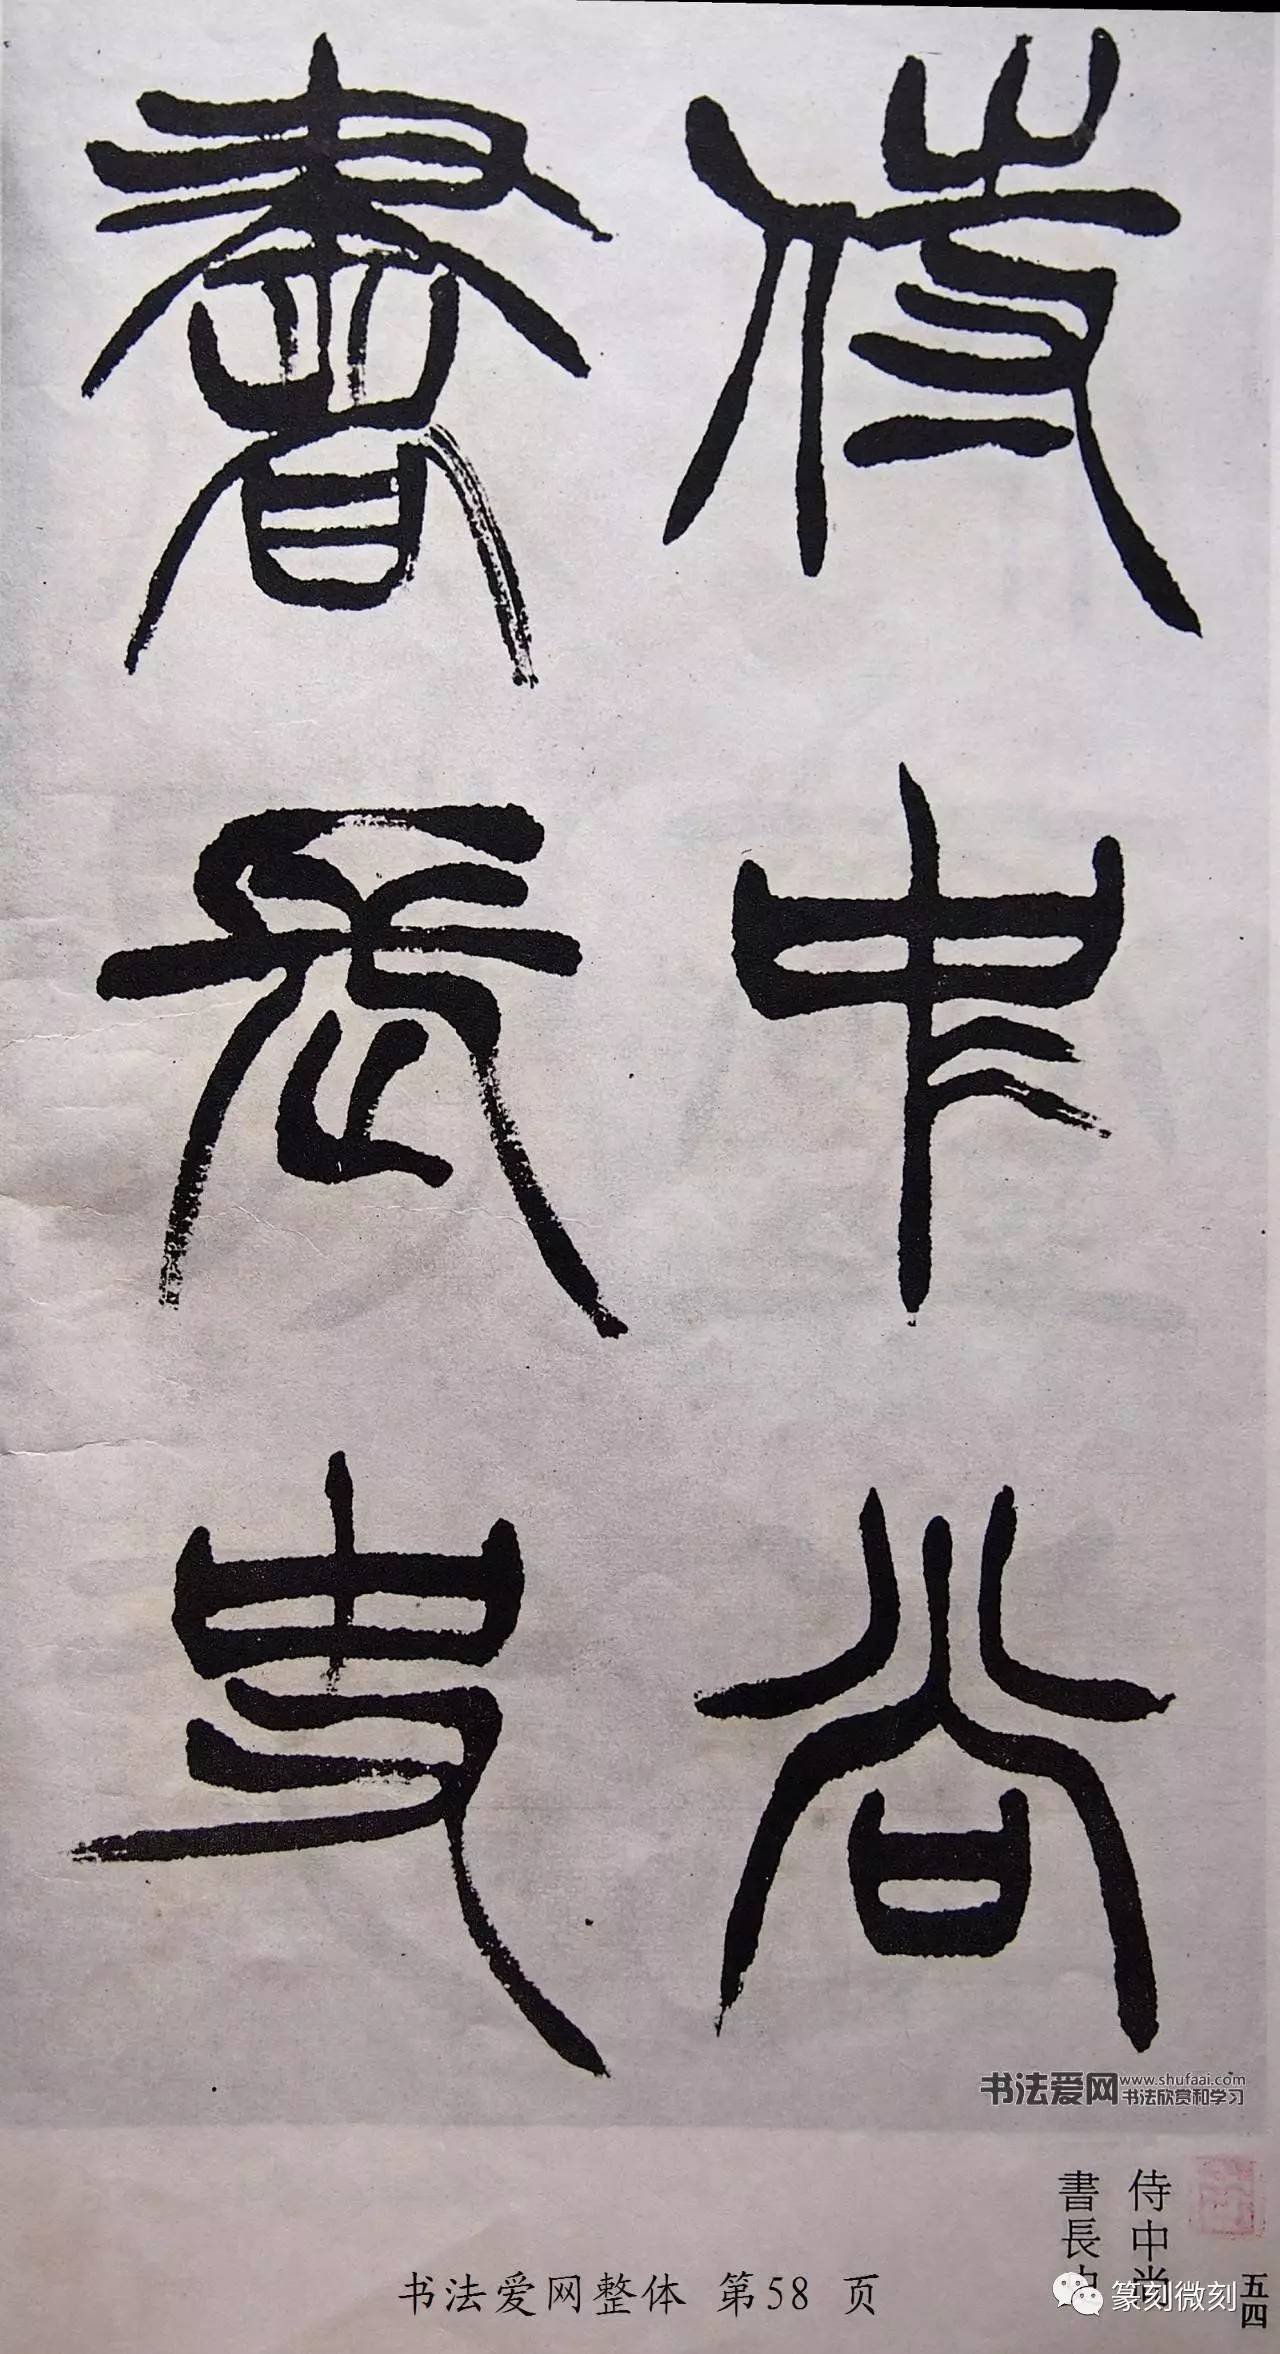 侍中尚
書長史
书法爱网 www.shufaai.com
书法欣赏和学习
侍中尚
書長
五四
书法爱网整体 第58 页
篆刻微刻